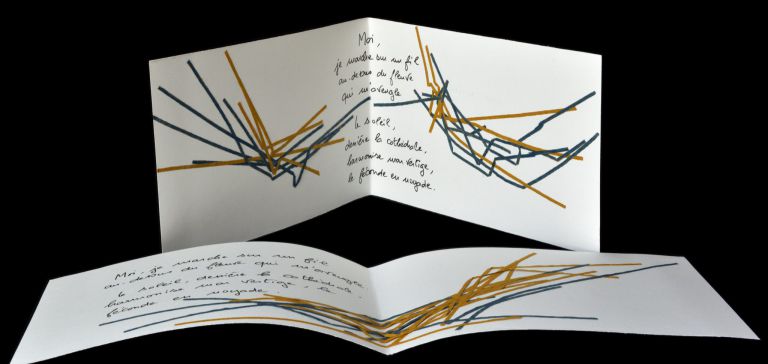 Moi,
je marche sur un fil
au-dessus du fleuve
qui m'aveugle
le soleil,
derrière la cathédrale,
harmonise mon vertige,
le féconde en noyade.
Moi, je marche sur un fil
au-dessus du fleuve qui m'aveugle
le soleil, derrière la cathédrale,
harmonise mon vertige, le
féconde en noyade.